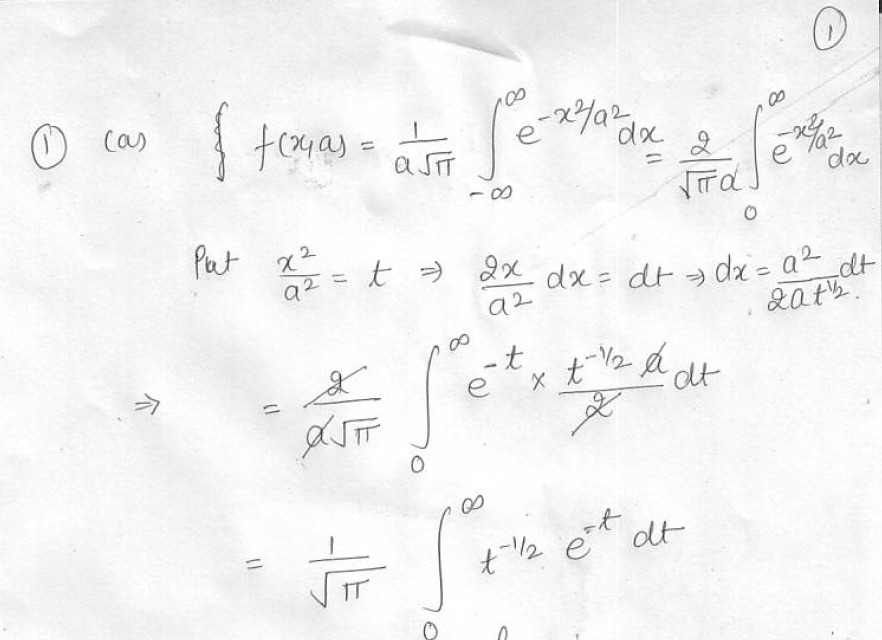 ①
① (a) ∫ f(x,a) = 1/(a√π) ∫_{-∞}^{∞} e^{-x²/a²} dx = 2/(√π a) ∫_{0}^{∞} e^{-x²/a²} dx
Put x²/a² = t ⇒ 2x/a² dx = dt ⇒ dx = a²/(2at^{1/2}) dt.
⇒ = 2/(a√π) ∫_{0}^{∞} e^{-t} × t^{-1/2} a/2 dt
= 1/√π ∫_{0}^{∞} t^{-1/2} e^{-t} dt